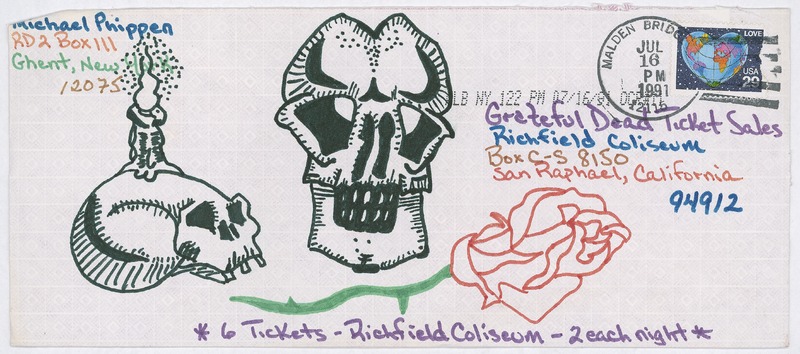 Michael Phippen
RD2 Box 111
Ghent, New York
12075
MALDEN BRIDGE
JUL
16
PM
1991
12115
LOVE
USA
29
LB NY 122 PM 07/16/91
Grateful Dead Ticket Sales
Richfield Coliseum
Box C-S 8150
San Raphael, California
94912
* 6 Tickets - Richfield Coliseum - 2 each night *